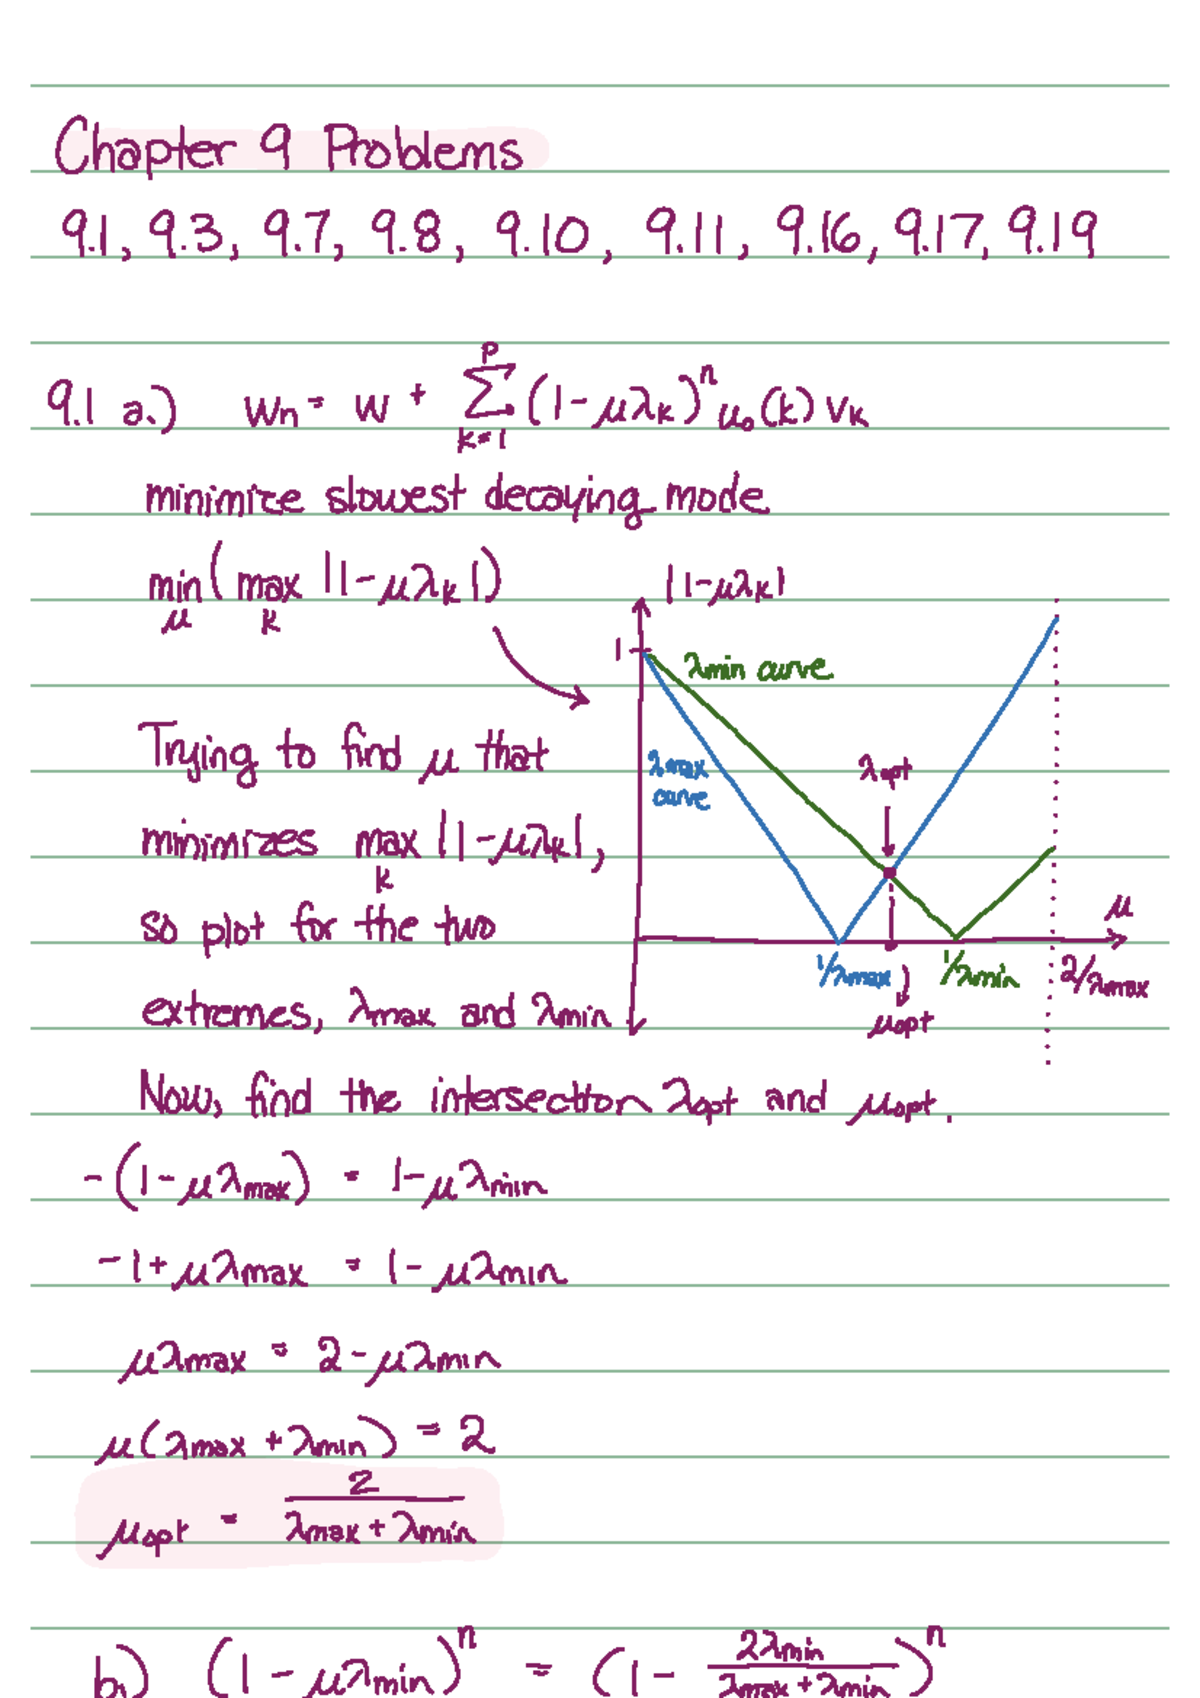 Chapter 9 Problems
9.1, 9.3, 9.7, 9.8, 9.10, 9.11, 9.16, 9.17, 9.19
9.1 a.) Wn = W + ∑_{k=1}^{p} (1-μλk)^n u₀(k) Vk
minimize slowest decaying mode
min_μ ( max_k |1-μλk| )
|1-μλk|
1
λmin curve
λmax
curve
λopt
μ
1/λmax
1/λmin
2/λmax
μopt
Trying to find μ that
minimizes max_k |1-μλk|,
so plot for the two
extremes, λmax and λmin
Now, find the intersection λopt and μopt.
-(1-μλmax) = 1-μλmin
-1+μλmax = 1-μλmin
μλmax = 2-μλmin
μ(λmax + λmin) = 2
μopt = 2/(λmax + λmin)
b.) (1-μλmin)^n = (1 - 2λmin/(λmax+λmin))^n